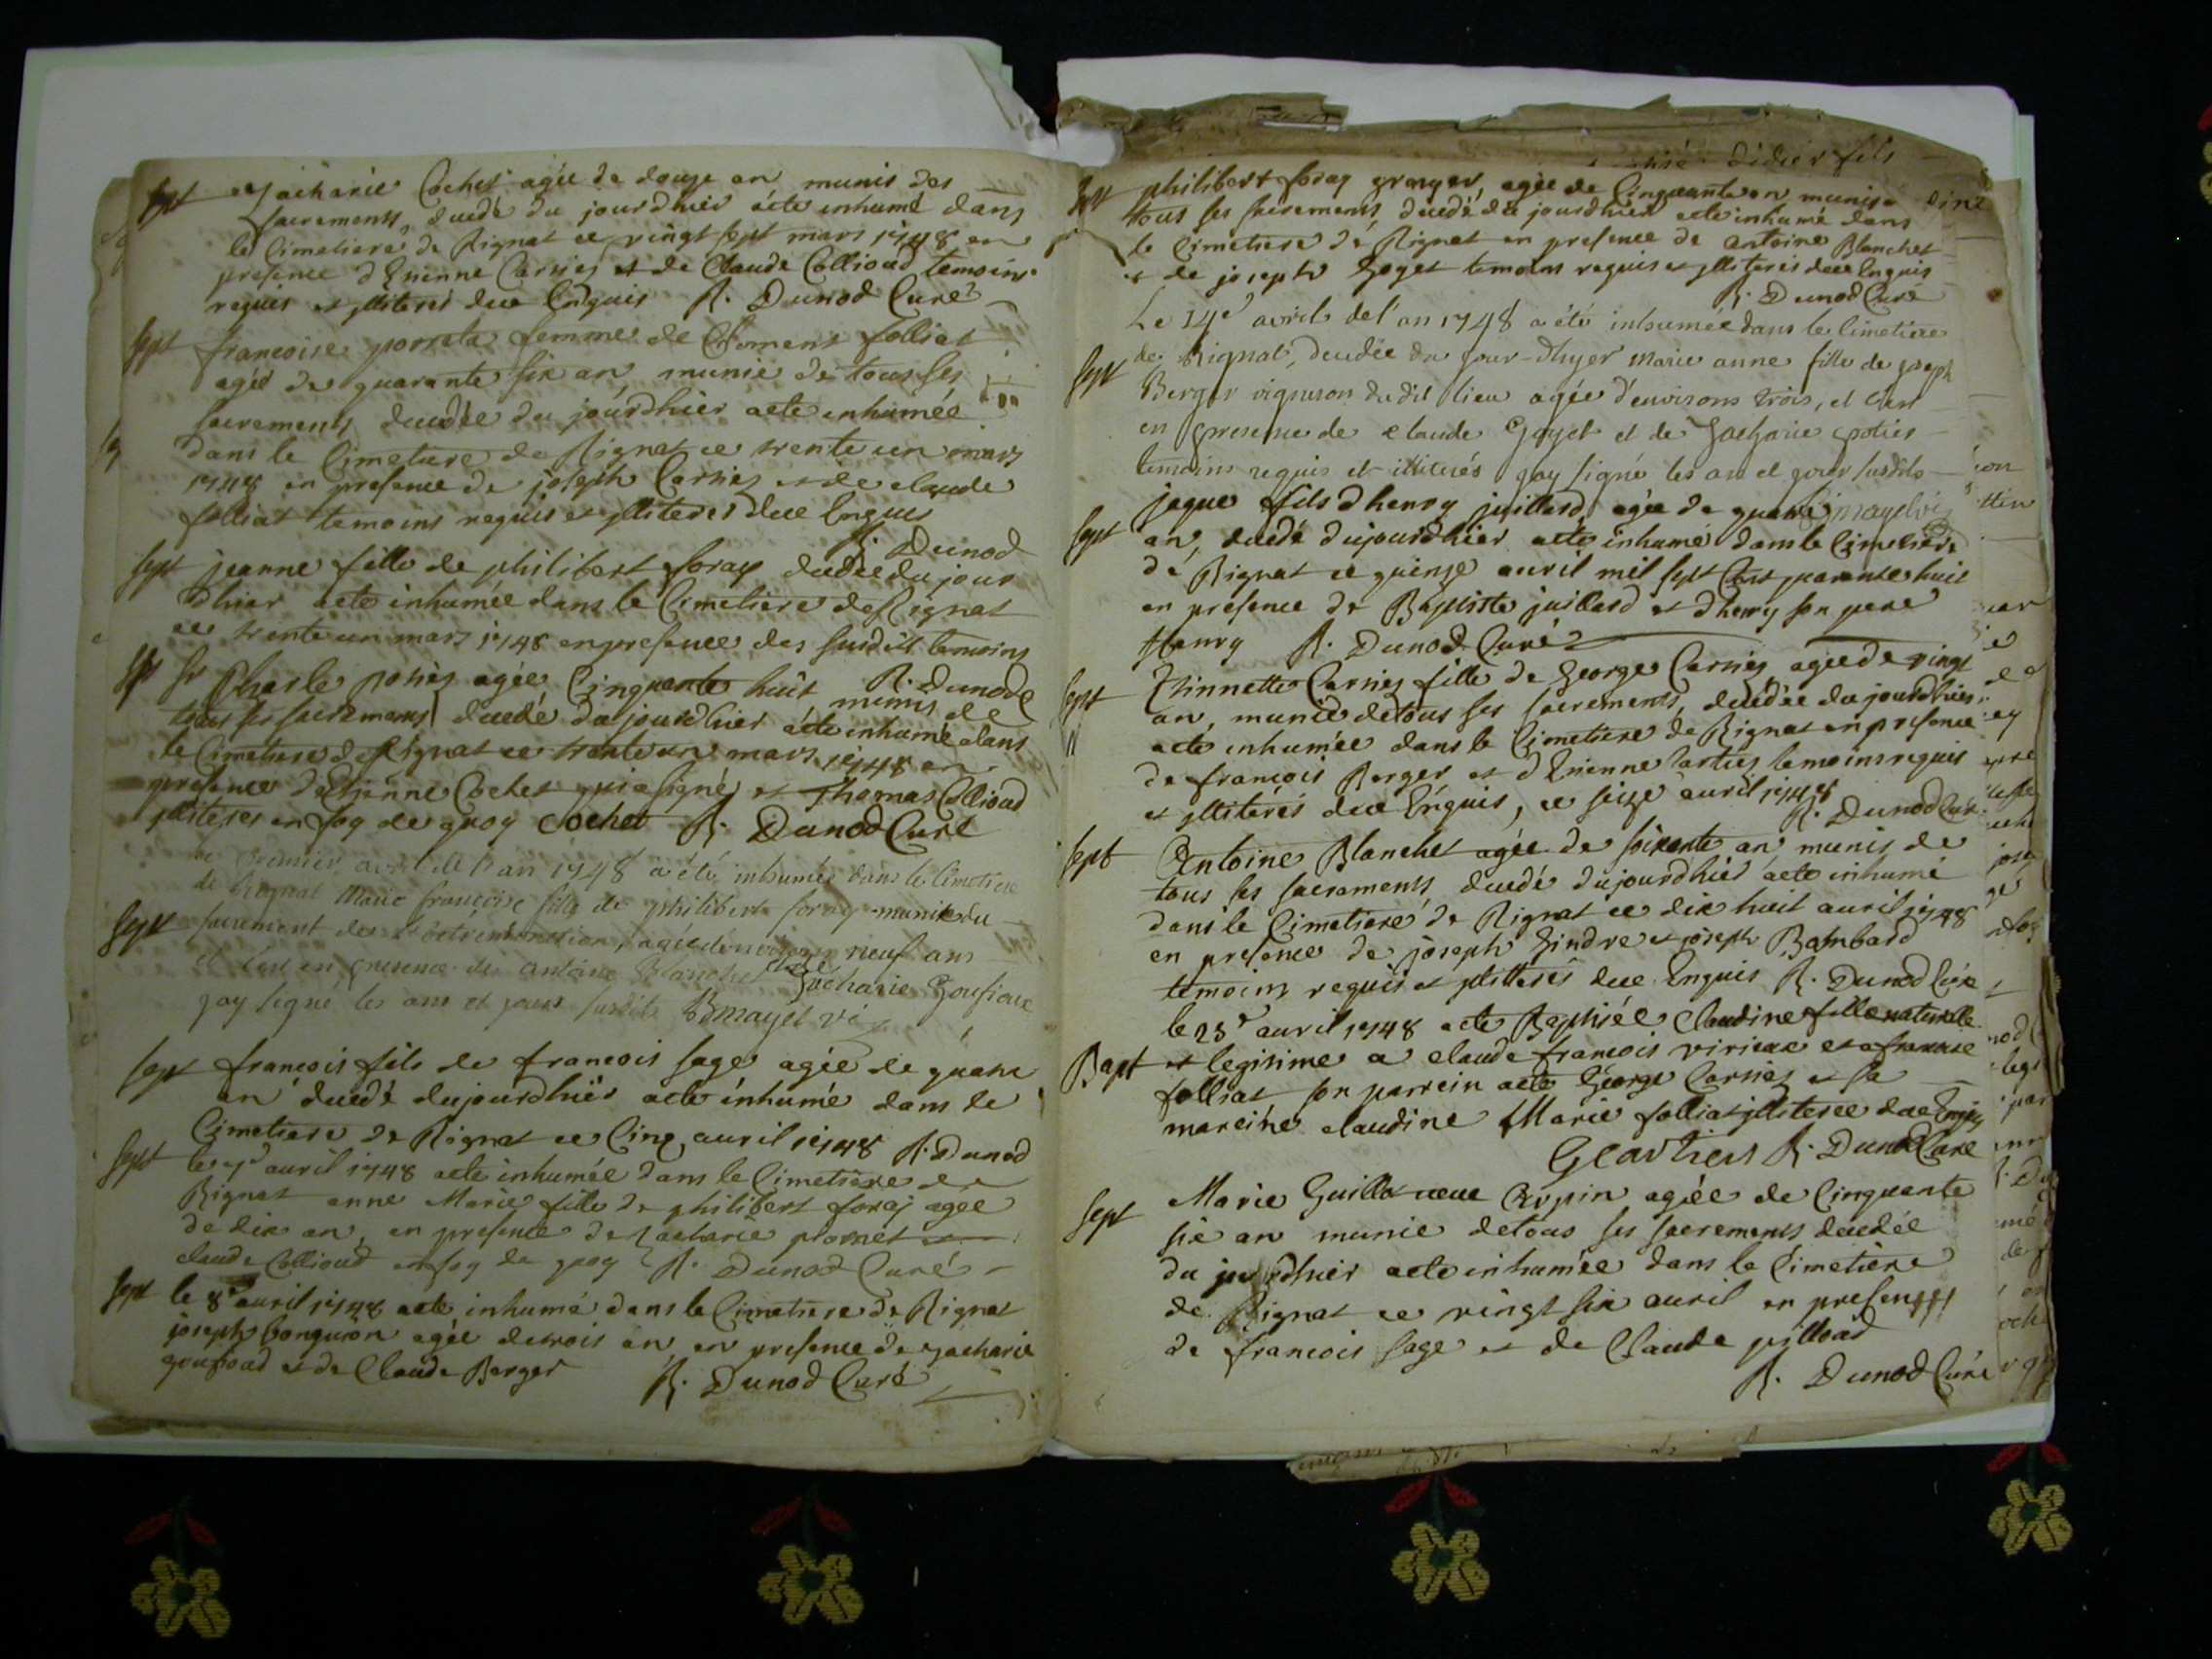 sept Zacharie Cochet agée de douze an munis des
sacrements, decedé du jourdhier aété inhumé dans
le Cimetiere de Rignat ce vingt sept mars 1748 en
presence d'Etienne Carriez et de Claude Collioud temoins
requis et jlliterés due Enquis R. Dunod Curé
sept francoise porrata femme de Clement folliat
agée de quarante six an, munie de tous ses
sacrements decedée du jourdhier aété inhumée
dans le Cimetiere de Rignat ce trente un mars
1748 en presence de joseph Carriez et de claude
folliat temoins requis et jlliteres due Enquis
R. Dunod
sept jeanne fille de philibert foray decedée du jour
dhier aété inhumée dans le Cimetiere de Rignat
ce trente un mars 1748 en presence des susdits temoins
R. Dunod
sept Sr Charle potiez agée Cinquante huit munis de
tous ses sacremens decedé du jourdhier aété inhumé dans
le Cimetiere de Rignat ce trente un mars 1748 en
presence d'Etienne Cochet qui a signé et Thomas Collioud
jlliteres en foy de quoy Cochet R. Dunod Curé
le premier avril de l'an 1748 a été inhumée dans le Cimetiere
de Rignat Marie françoise fille de philibert foray munie du
sept sacrement de agée d'environ neuf ans
et c'est en presence de antoine Blanchet et de Zacharie Goufioux
jay signé les ans et jours susdits Bmayet vic
sept francois fils de francois sage agée de quatre
an decedé dujourdhier aété inhumé dans le
Cimetiere de Rignat ce Cinq avril 1748 R. Dunod
sept le 7e avril 1748 aété inhumée dans le Cimetiere de
Rignat anne Marie fille de philibert foray agée
de dix an, en presence de Zacharie promet
claude Collioud en foy de quoy R. Dunod Curé
sept le 8e avril 1748 aété inhumé dans le Cimetiere de Rignat
joseph bonguron agée detrois an, en presence de zacharie
goufioud et de Claude Berger R. Dunod Curé
didier fils
sept philibert foray granger, agée de Cinquante an munis
tous ses sacrements, decedé du jourdhier aété inhumé dans
le Cimetiere de Rignat en presence de antoine Blanchet
et de joseph Goyet temoins requis et jlliterés due Enquis
R. Dunod Curé
Le 14e avril de l'an 1748 a été inhumée dans le Cimetiere
de Rignat, decedée du jour-dhyer marie anne fille de joseph
sept Berger vigneron dudit lieu agée d'environs trois, et c'est
en presence de claude Goyet et de Zacharie potier
temoins requis et illiterés jay signé les an et jour susdits
Bmayet vic
jaque fils dhenry juillard, agée de quatre
sept an, decedé dujourdhier aété inhumé dans le Cimetiere
de Rignat ce quinze avril mil sept Cent quarante huit
en presence de Baptiste juillard et dhenry son pere
Henry R. Dunod Curé
sept Thinnette Carriez fille de George Carriez agée de vingt
an, munie de tous ses sacrements, decedée du jourdhier
aété inhumée dans le Cimetiere de Rignat en presence
de francois Berger et d'Etienne Cartiez temoins requis
et jlliterés due Enquis, ce seize avril 1748
R. Dunod Curé
sept Antoine Blanchet agée de soixante an munis de
tous ses sacraments decedé dujourdhier aété inhumé
dans le Cimetiere de Rignat ce dix huit avril 1748
en presence de joseph Gindre et joseph Bambard
temoins requis et jlliterés due Enquis R. Dunod Curé
le 23e avril 1748 aété Baptisée Claudine fille naturelle
Bapt et legitime a claude francois virieux et a francoise
folliat son parrein aété George Carriez et sa
mareine claudine Marie folliat jlliterée due Enquis
GCartiers R. Dunod Curé
sept Marie Guillot veuve Crepin agée de Cinquante
six an munie detous ses sacrements decedée
du jourdhier aété inhumée dans le Cimetiere
de Rignat ce vingt six avril en presence
de francois sage et de Claude pilloud
R. Dunod Curé